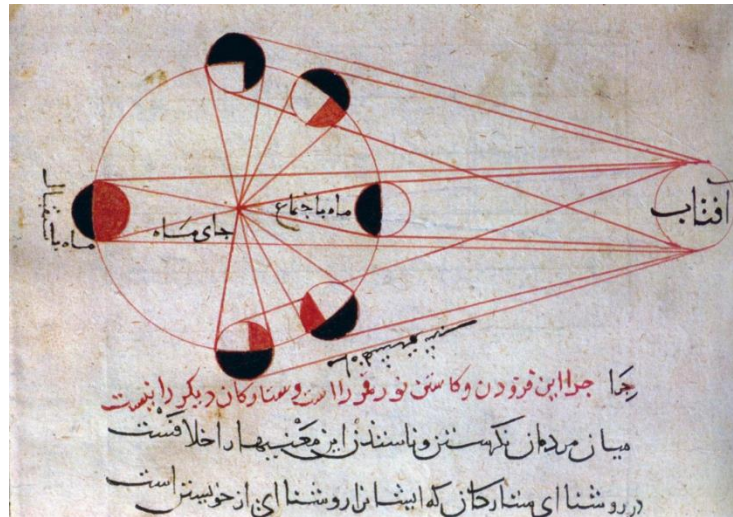 آفتاب
ماه باجتماع
جای ماه
ماه باستقبال
چرا این فزودن و کاستن نور قمر را است و ستارکان دیکر را نیست
میان مردمان نکرستن و ناستدن این معنیها را خلافست
در روشنا ای ستارکان که ایشانرا روشنا ای از خویشتن است